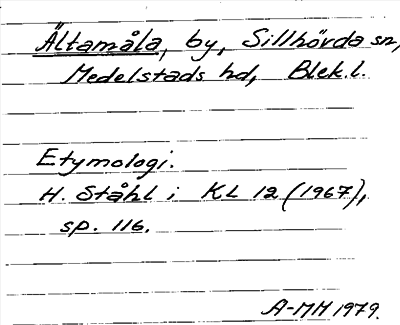 Ältamåla, by, Sillhövda sn,
Medelstads hd, Blek.l.
Etymologi.
H. Ståhl i KL 12 (1967),
sp. 116.
A-MM 1979.